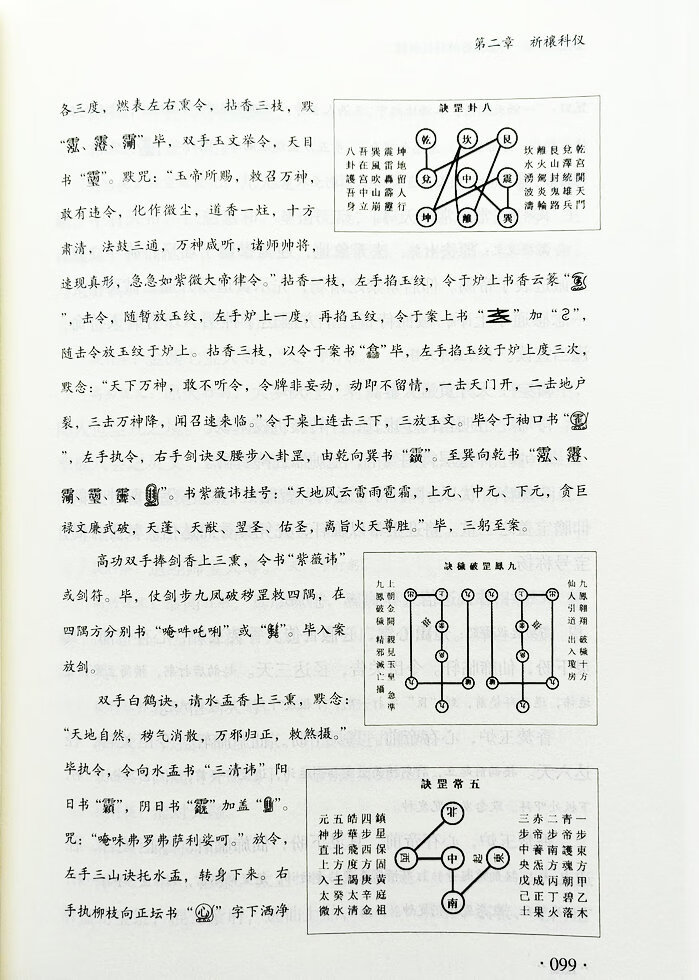 第二章 祈禳科仪
各三度，燃表左右熏令，拈香三枝，默
“、、”毕，双手玉文举令，天目
书“”。默咒：“玉帝所赐，敕召万神，
敢有违令，化作微尘，道香一炷，十方
肃清，法鼓三通，万神咸听，诸师帅将，
速现真形，急急如紫微大帝律令。”拈香一枝，左手掐玉纹，令于炉上书香云篆“
”，击令，随暂放玉纹，左手炉上一度，再掐玉纹，令于案上书“”加“”，
随击令放玉纹于炉上。拈香三枝，以令于案书“”毕，左手掐玉纹于炉上度三次，
默念：“天下万神，敢不听令，令牌非妄动，动即不留情，一击天门开，二击地户
裂，三击万神降，闻召速来临。”令于桌上连击三下，三放玉文。毕令于袖口书“
”，左手执令，右手剑诀叉腰步八卦罡，由乾向巽书“”。至巽向乾书“、、
、、、”。书紫薇讳挂号：“天地风云雷雨雹霜，上元、中元、下元，贪巨
禄文廉武破，天蓬、天猷、翌圣、佑圣，离旨火天尊胜。”毕，三躬至案。
高功双手捧剑香上三熏，令书“紫薇讳”
或剑符。毕，仗剑步九凤破秽罡敕四隅，在
四隅方分别书“唵吽吒唎”或“”。毕入案
放剑。
双手白鹤诀，请水盂香上三熏，默念：
“天地自然，秽气消散，万邪归正，敕煞摄。”
毕执令，令向水盂书“三清讳”阳
日书“”，阴日书“”加盖“”。
咒：“唵味弗罗弗萨利娑呵。”放令，
左手三山诀托水盂，转身下来。右
手执柳枝向正坛书“”字下洒净
八卦罡訣
乾宮開天門
兌澤統雄兵
艮山封鬼路
離火駕炎輪
坎水湧波濤
坤地留人行
震雷轟霹靂
巽風吹山崩
吾在宮中立
八卦護吾身
乾 坎 艮
兌 中 震
坤 離 巽
九鳳罡破穢訣
九鳳翱翔 破穢十方
仙人引道 出入瓊房
上朝金闕 親見玉皇 急準
九鳳破穢 精邪滅亡攝
五常訣
一步東方甲乙木
青帝護魂朝碧落
二步南方丙丁火
赤帝養炁成正果
三步中央戊己土
鎮星保固黃庭祖
四步西方庚辛金
皓華飛度謁太清
五步北方壬癸水
元神直上入太微
北
西 中 東
南
·099·